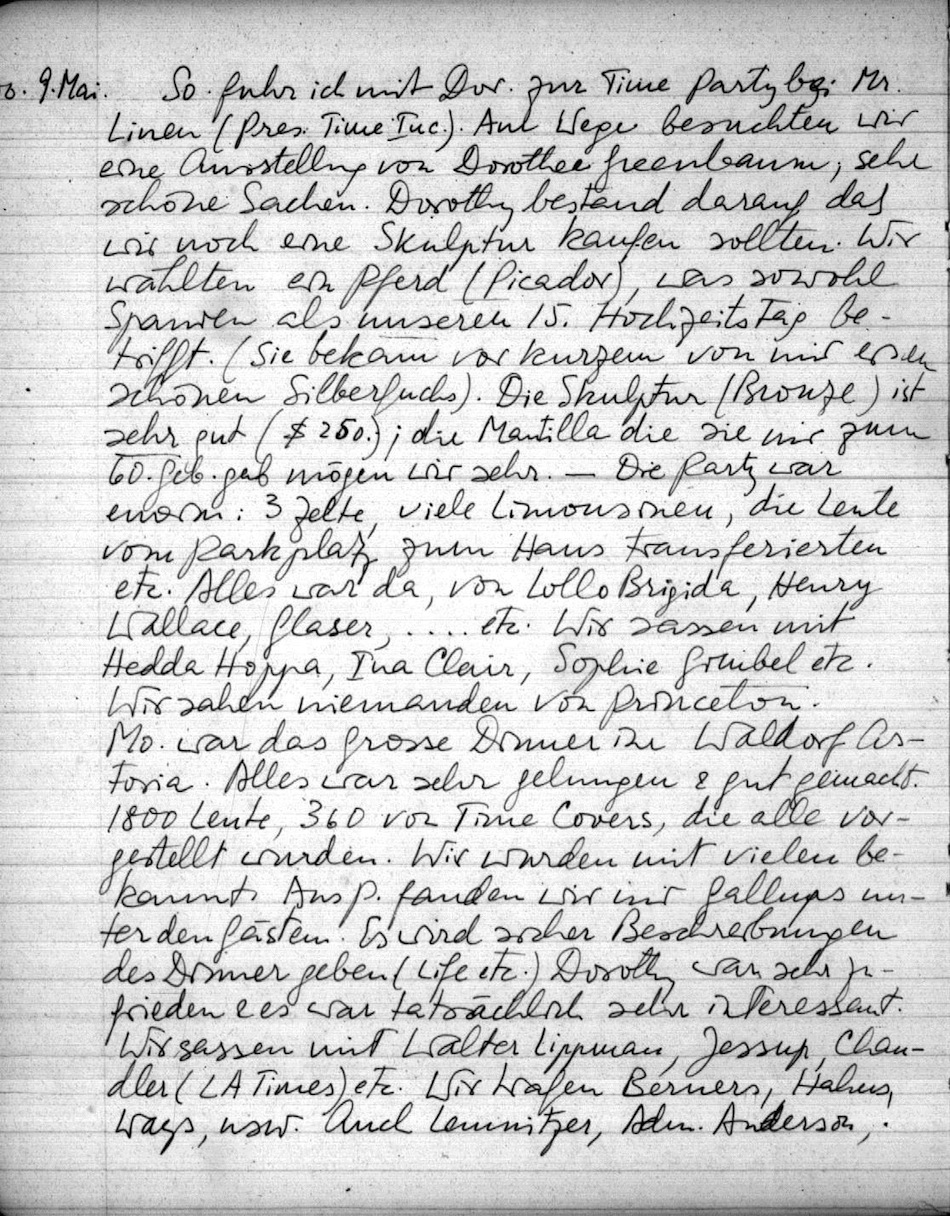 9. Mai. So fuhr ich mit Dor. zur Time Party bei Mr.
Linen (Pres. Time Inc.). Am Wege besuchten wir
eine Ausstellung von Dorothee Greenbaum, sehr
schöne Sachen. Dorothy bestand darauf das
wir noch eine Skulptur kaufen sollten. Wir
wählten ein Pferd (Picador), was sowohl
Spanien als unseren 15. Hochzeitstag be-
trifft. (Sie bekam vor kurzem von mir einen
schönen Silberfuchs). Die Skulptur (Bronze) ist
sehr gut ($ 250.); die Mantilla die sie mir zum
60. Geb. gab mögen wir sehr. — Die Party war
enorm: 3 Zelte, viele Limousinen, die Leute
vom Parkplatz zum Haus transferierten
etc. Alles war da, von Lollo Brigida, Henry
Wallace, Glaser, .... etc. Wir sassen mit
Hedda Hoppa, Ina Clair, Sophie Gimbel etc.
Wir sahen niemanden von Princeton.
Mo. war das grosse Dinner im Waldorf As-
toria. Alles war sehr gelungen & gut gemacht.
1800 Leute, 360 von Time Covers, die alle vor-
gestellt wurden. Wir wurden mit vielen be-
kannt. Aus P. fanden wir nur Gallups un-
ter den Gästen. Es wird sicher Beschreibungen
des Dinner geben (Life etc.) Dorothy war sehr zu-
frieden & es war tatsächlich sehr interessant.
Wir sassen mit Walter Lippman, Jessup, Chan-
dler (LA Times) etc. Wir trafen Berners, Hahns,
Ways, usw. Auch Lemnitzer, Adm. Anderson,.